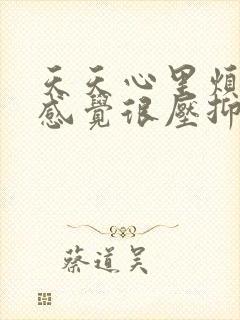 天天心里煩
感覺很壓抑
蔡道吴